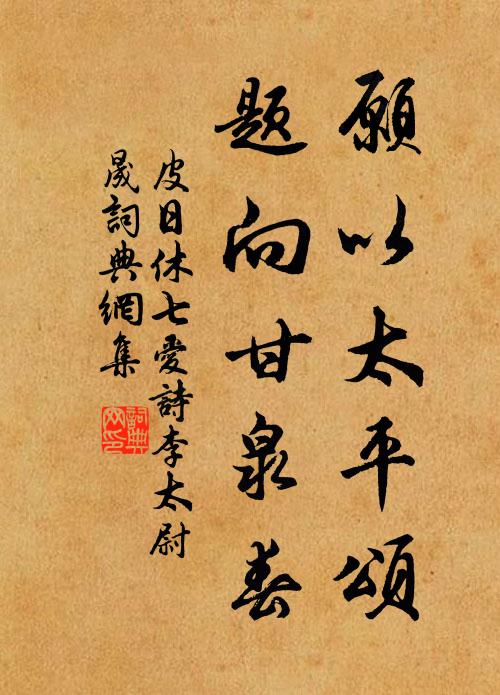 願以太平頌
題向甘泉春
皮日休七愛詩李太尉
晟詞典網集
詞典
网印